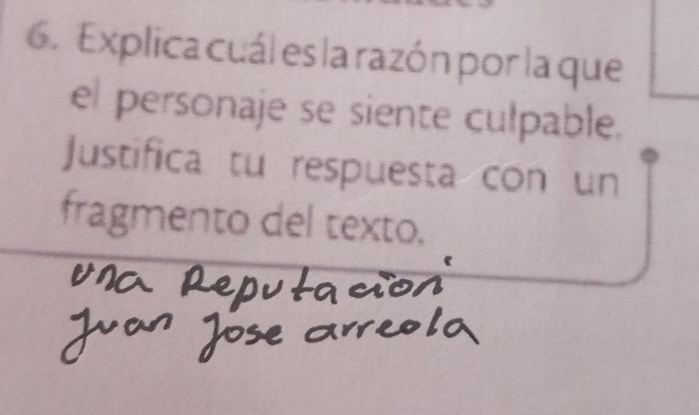 6. Explica cuál es la razón por la que
el personaje se siente culpable.
Justifica tu respuesta con un
fragmento del texto.
una Reputación
Juan Jose arreola